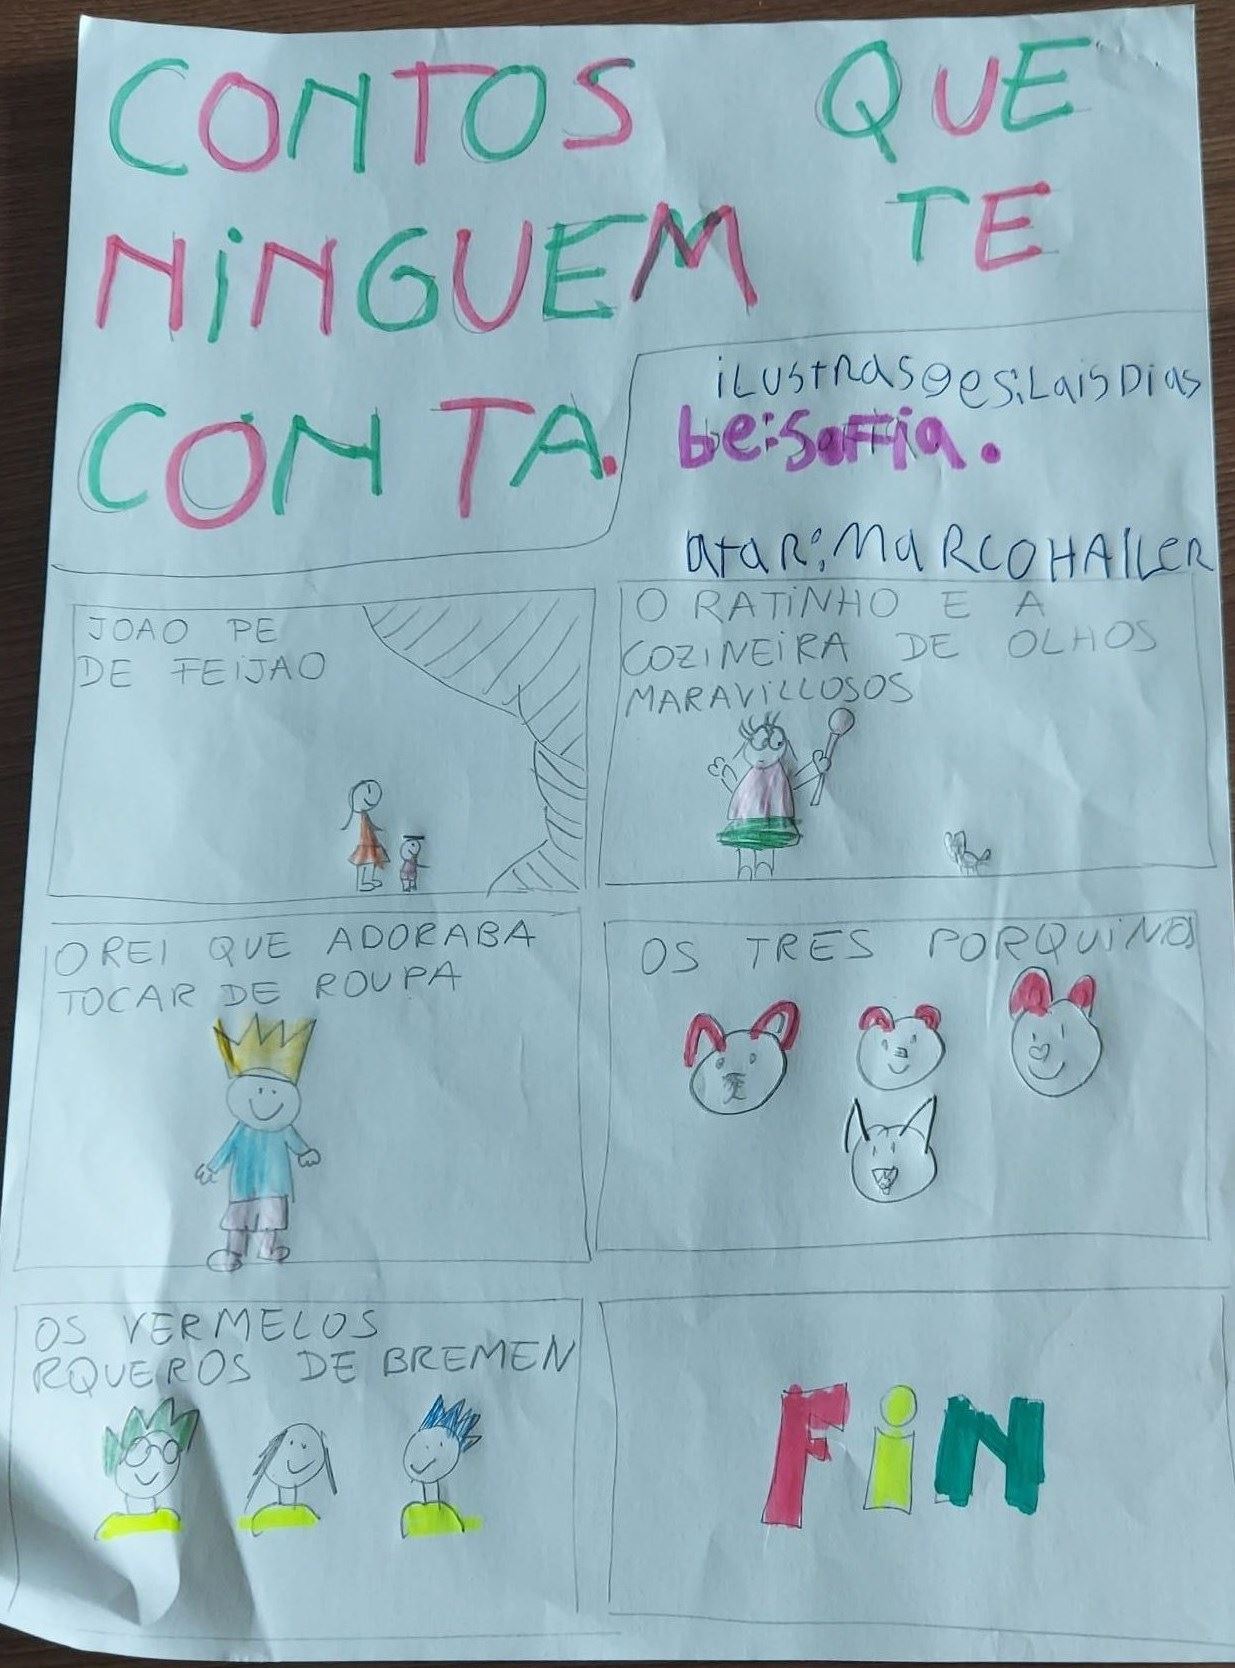 CONTOS QUE
NINGUEM TE
CONTA.
iLUStRaSoeS:LaiSDias
be:Soffia.
atar:MaRCOHAllER
JOAO PE
DE FEIJAO
O RATiNHO E A
COZiNEiRA DE OLHOS
MARAViLLOSOS
O REI QUE ADORABA
TOCAR DE ROUPA
OS TRES PORQUiNO
OS VERMELOS
RQUEROS DE BREMEN
FiN